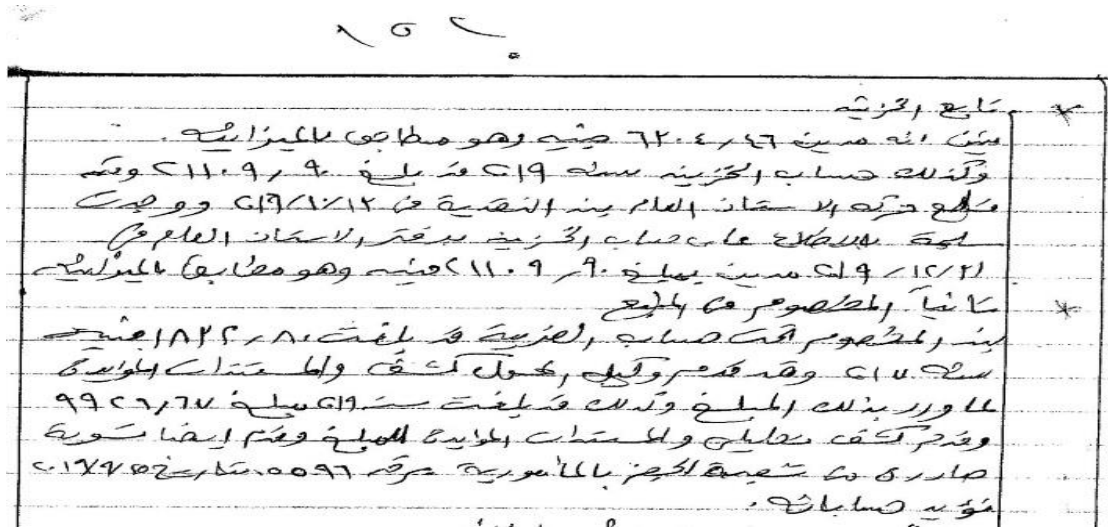 تابع الخزينه
تبين انه مدين ٦٢٠٤٫٤٦ جنيه وهو مطابق بالميزانيه .
وكذلك حساب الخزينه سنه ٢٠١٩ قد بلغ ٢١١٠٩٫٩٠ وتم
حركه الاستاذ العام بند النقدية في ووجدت
سليمة بالاطلاع على حساب الخزينه بدفتر الاستاذ العام في
٢٠١٩/١٢/٣١ مدين بمبلغ ٢١١٠٩٫٩٠ جنيه وهو مطابق بالميزانيه
ثانياً المخصوم من المنبع
بند المخصوم تحت حساب الضريبة قد بلغت ١٨٢٢٫٨٠ جنيه
سنه ٢٠١٧ وقد قدم وكيل الممول كشف والمستندات المؤيدة
لما ورد بذلك المبلغ وكذلك قد بلغت سنة ٢٠١٩ مبلغ ٩٩٢٦٫٦٧
وقدم كشف تحليلي والمستندات المؤيدة للمبلغ وقدم ايضا تسوية
صادرة من شعبة الحجز بالمأمورية برقم ٥٥٩٦ بتاريخ
تؤيد حساباته .